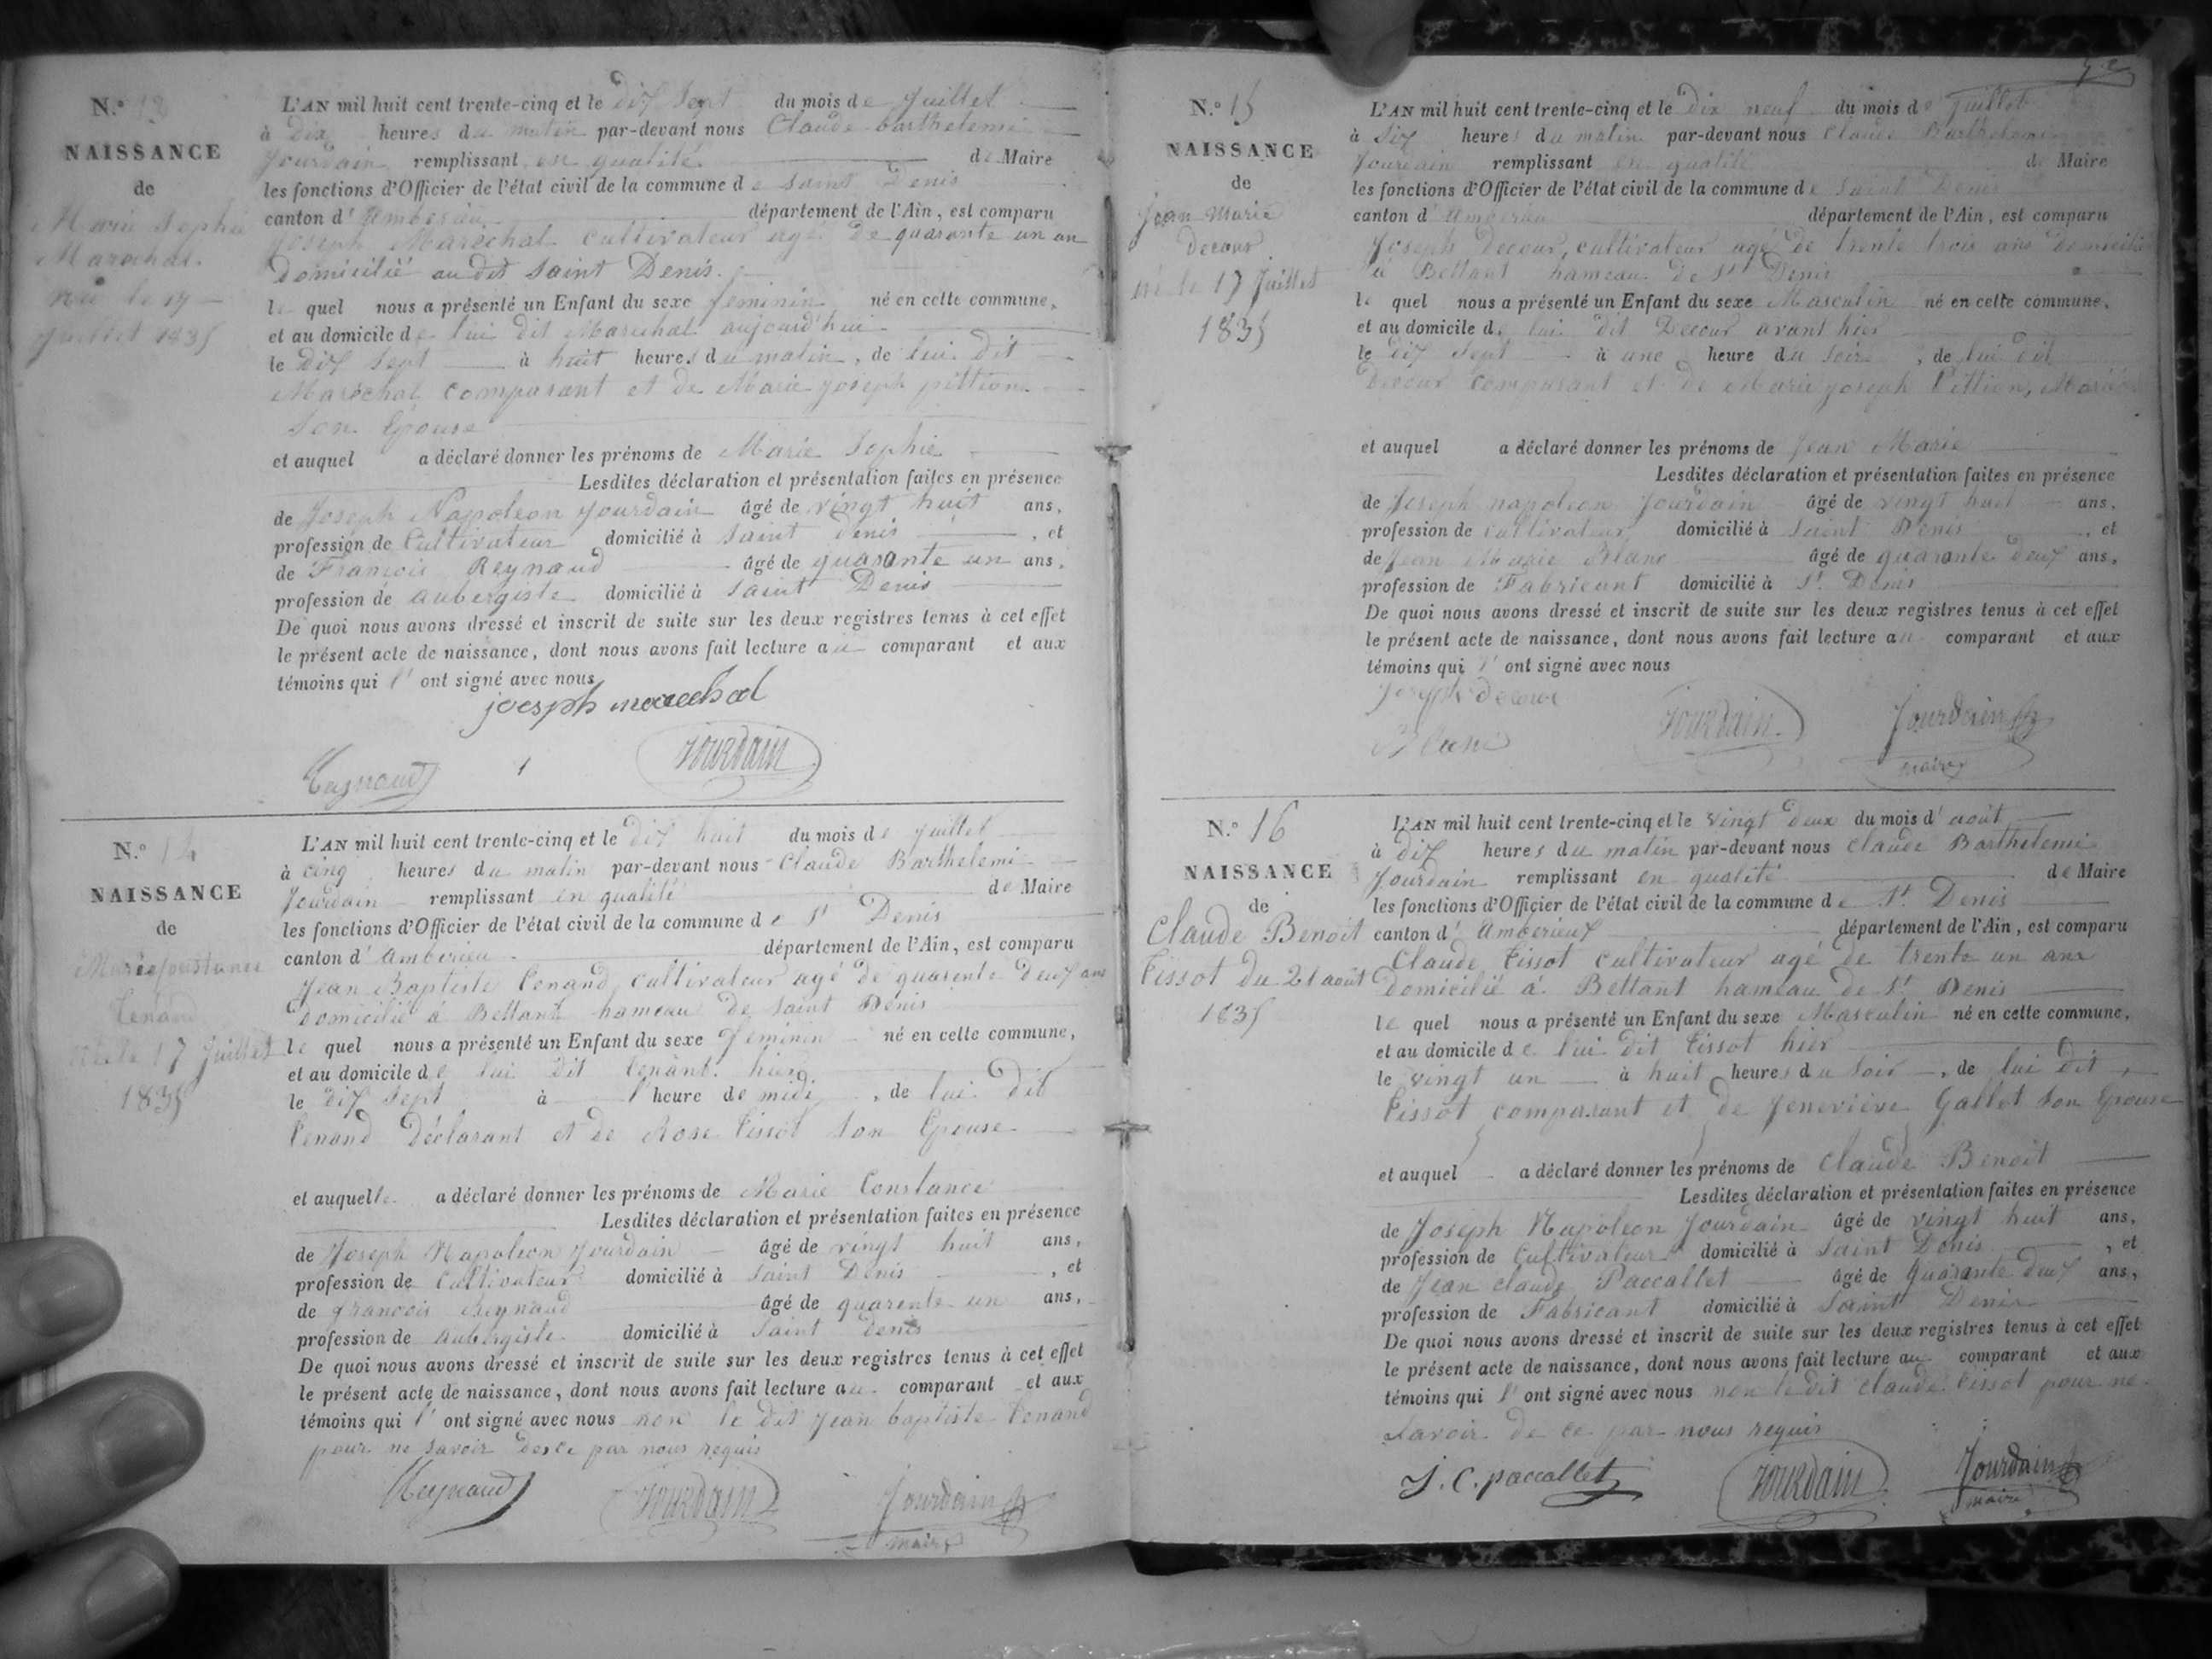 N.° 13
NAISSANCE
de
Marie Sophie
Marechal.
née le 17
juillet 1835
L'AN mil huit cent trente-cinq et le dix sept du mois de juillet
à dix heures du matin par-devant nous Claude Barthelemi
Jourdain remplissant en qualité de Maire
les fonctions d'Officier de l'état civil de la commune de Saint Denis
canton d'Amberieu département de l'Ain, est comparu
Joseph Maréchal cultivateur agé de quarante un an
domicilié au dit Saint Denis.
le quel nous a présenté un Enfant du sexe feminin né en cette commune,
et au domicile de lui dit Marechal aujourd'hui
le dix sept à huit heures du matin, de lui dit
Maréchal comparant et de Marie joseph pittion
Son Epouse
et auquel a déclaré donner les prénoms de Marie Sophie
Lesdites déclaration et présentation faites en présence
de Joseph Napoleon Jourdain âgé de vingt huit ans,
profession de Cultivateur domicilié à Saint Denis, et
de François Reynaud âgé de quarante un ans,
profession de aubergiste domicilié à Saint Denis
De quoi nous avons dressé et inscrit de suite sur les deux registres tenus à cet effet
le présent acte de naissance, dont nous avons fait lecture au comparant et aux
témoins qui l'ont signé avec nous
joesph marechal
Reynaud Jourdain
N.° 14
NAISSANCE
de
Marie Constance
Tenand
née le 17 Juillet
1835
L'AN mil huit cent trente-cinq et le dix huit du mois de juillet
à cinq heures du matin par-devant nous Claude Barthelemi
Jourdain remplissant en qualité de Maire
les fonctions d'Officier de l'état civil de la commune de St Denis
canton d'Amberieu département de l'Ain, est comparu
Jean Baptiste Tenand cultivateur agé de quarente deux ans
domicilié à Bettant hameau de Saint Denis
le quel nous a présenté un Enfant du sexe feminin né en cette commune,
et au domicile de lui dit Tenant hier
le dix sept à l'heure de midi, de lui dit
Tenand Déclarant et de Rose Tissot Son Epouse
et auquelle a déclaré donner les prénoms de Marie Constance
Lesdites déclaration et présentation faites en présence
de Joseph Napoleon Jourdain âgé de vingt huit ans,
profession de Cultivateur domicilié à Saint Denis, et
de françois Reynaud âgé de quarente un ans,
profession de aubergiste domicilié à Saint Denis
De quoi nous avons dressé et inscrit de suite sur les deux registres tenus à cet effet
le présent acte de naissance, dont nous avons fait lecture au comparant et aux
témoins qui l'ont signé avec nous non le dit Jean baptiste Tenand
pour ne savoir de ce par nous requis
Reynaud Jourdain Jourdain
maire
N.° 15
NAISSANCE
de
Jean Marie
Decour
né le 17 Juillet
1835
L'AN mil huit cent trente-cinq et le dix neuf du mois de juillet
à six heures du matin par-devant nous Claude Barthelemi
Jourdain remplissant en qualité de Maire
les fonctions d'Officier de l'état civil de la commune de Saint Denis
canton d'Amberieu département de l'Ain, est comparu
Joseph Decour, cultivateur agé de trente trois ans domicilié
à Bettant hameau de St Denis
le quel nous a présenté un Enfant du sexe Masculin né en cette commune,
et au domicile de lui dit Decour avant hier
le dix sept à une heure du soir, de lui dit
Decour comparant et de Marie joseph Pittion, Mariés
et auquel a déclaré donner les prénoms de Jean Marie
Lesdites déclaration et présentation faites en présence
de Joseph napoleon Jourdain âgé de vingt huit ans,
profession de Cultivateur domicilié à Saint Denis, et
de Jean Marie Blanc âgé de quarante deux ans,
profession de Fabricant domicilié à St Denis
De quoi nous avons dressé et inscrit de suite sur les deux registres tenus à cet effet
le présent acte de naissance, dont nous avons fait lecture au comparant et aux
témoins qui l'ont signé avec nous
joseph decour
Blanc Jourdain Jourdain
maire
N.° 16
NAISSANCE
de
Claude Benoit
Tissot du 21 août
1835
L'AN mil huit cent trente-cinq et le vingt deux du mois d'août
à dix heures du matin par-devant nous Claude Barthelemi
Jourdain remplissant en qualité de Maire
les fonctions d'Officier de l'état civil de la commune de St Denis
canton d'Amberieux département de l'Ain, est comparu
Claude Tissot cultivateur agé de trente un ans
domicilié à Bettant hameau de St Denis
le quel nous a présenté un Enfant du sexe Masculin né en cette commune,
et au domicile de lui dit Tissot hier
le vingt un à huit heures du soir, de lui dit
Tissot comparant et de Jeneviève Gallet Son Epouse
et auquel a déclaré donner les prénoms de Claude Benoit
Lesdites déclaration et présentation faites en présence
de Joseph Napoleon Jourdain âgé de vingt huit ans,
profession de Cultivateur domicilié à Saint Denis, et
de Jean claude Paccallet âgé de quarante deux ans,
profession de Fabricant domicilié à Saint Denis
De quoi nous avons dressé et inscrit de suite sur les deux registres tenus à cet effet
le présent acte de naissance, dont nous avons fait lecture au comparant et aux
témoins qui l'ont signé avec nous non le dit Claude Tissot pour ne
Savoir de ce par nous requis
J. C. paccallet Jourdain Jourdain
maire